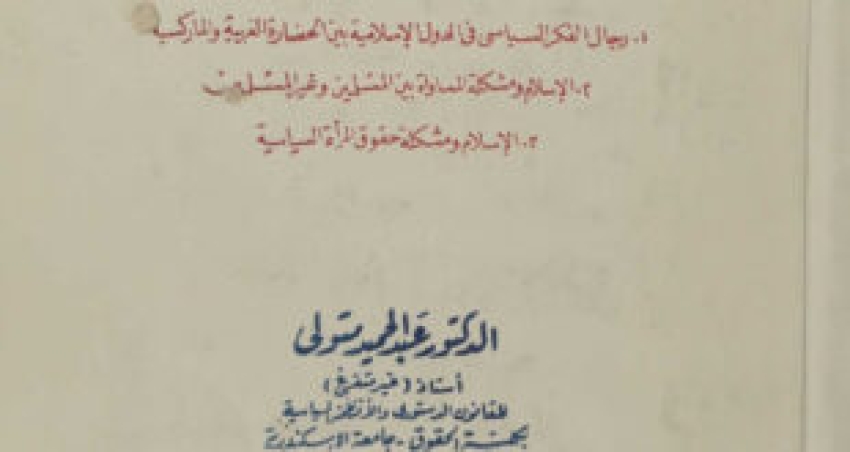 ١- رجال الفكر السياسى فى الدول الإسلامية بين الحضارة الغربية والماركسية
٢- الإسلام ومشكلة المساواة بين المسلمين وغير المسلمين
٣- الإسلام ومشكلة حقوق المرأة السياسية
الدكتور عبد الحميد متولى
أستاذ (غير متفرغ)
للقانون الدستورى والأنظمة السياسية
بكلية الحقوق - جامعة الإسكندرية